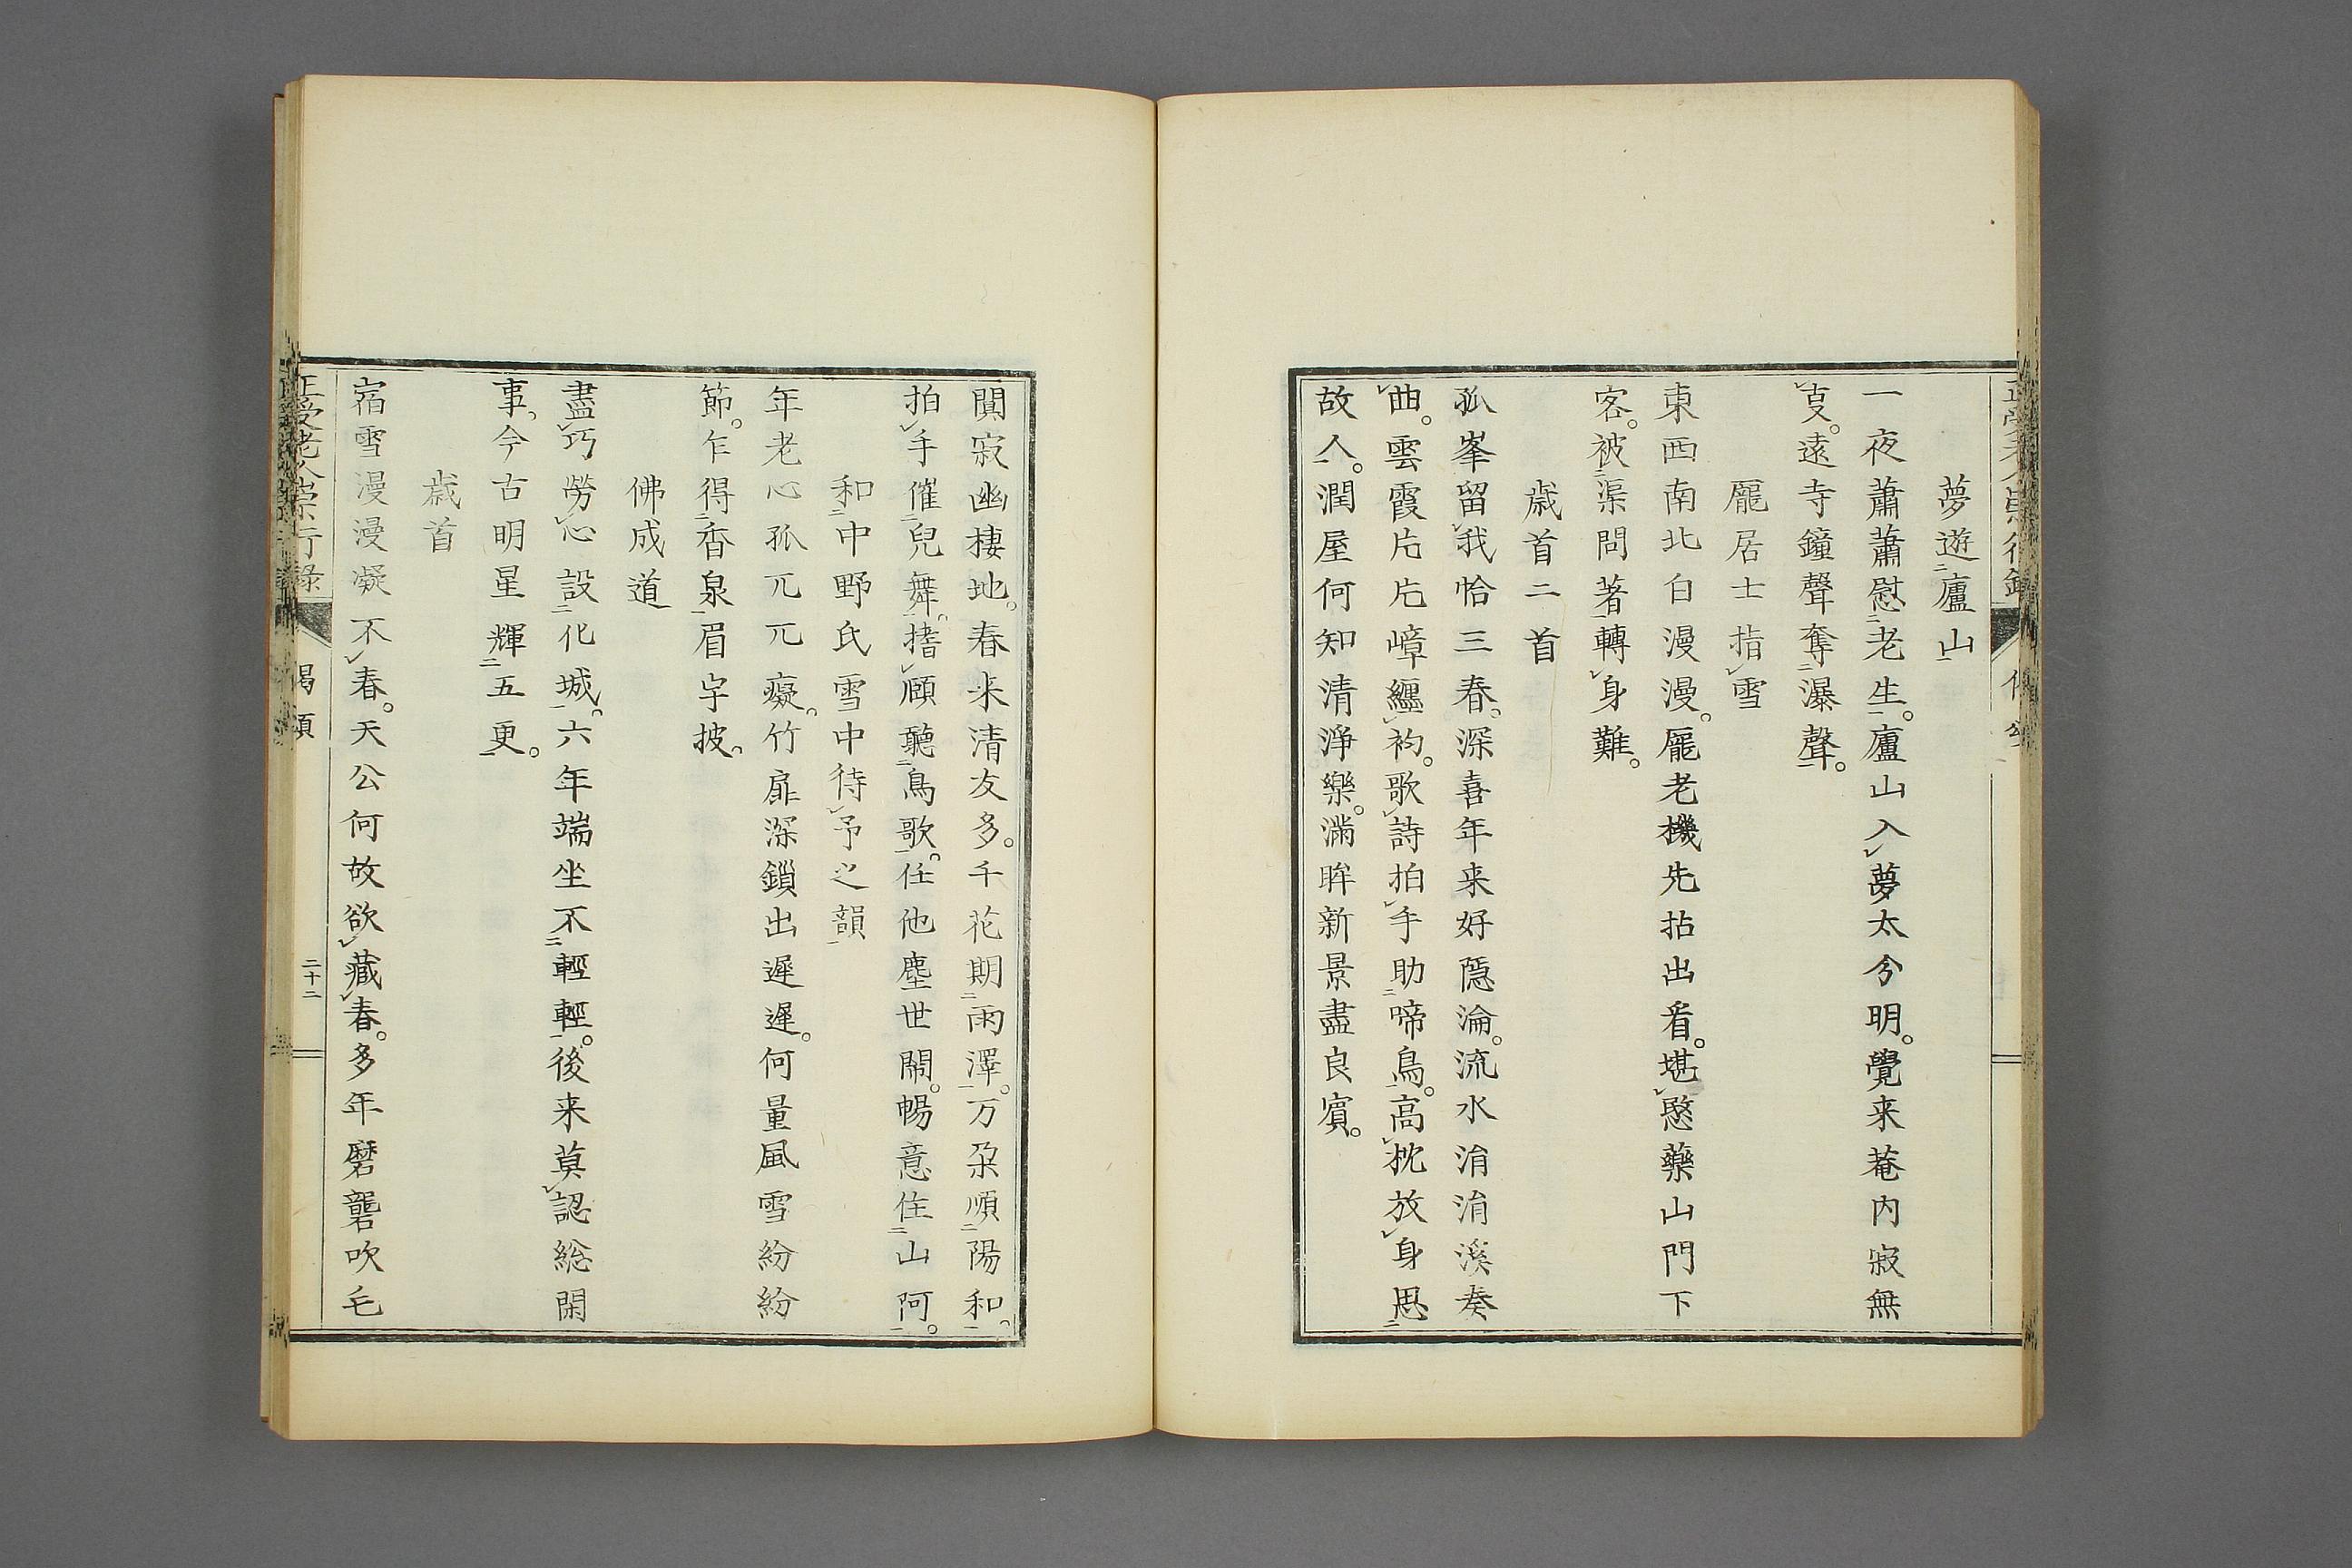 夢遊廬山
一夜蕭蕭慰老生。廬山入夢太分明。覺来菴内寂無
叟。遠寺鐘聲奪瀑聲。
龐居士指雪
東西南北白漫漫。龐老機先拈出看。堪愍藥山門下
客。被渠問著轉身難。
歳首二首
孤峯留我恰三春。深喜年来好隱淪。流水涓涓溪奏
曲。雲霞片片嶂纒袀。歌詩拍手助啼鳥。高枕放身思
故人。潤屋何知清淨樂。滿眸新景盡良賓。
闃寂幽棲地。春来清友多。千花期雨澤。万朶順陽和。
拍手催兒舞。搘頤聽鳥歌。任他塵世閙。暢意住山阿。
和中野氏雪中待予之韻
年老心孤兀兀癡。竹扉深鎖出遲遲。何量風雪紛紛
節。乍得香泉眉宇披。
佛成道
盡巧勞心設化城。六年端坐不輕輕。後来莫認総閑
事。今古明星輝五更。
歳首
宿雪漫漫凝不春。天公何故欲藏春。多年磨礱吹毛
正受老人崇行録
偈頌
二十二